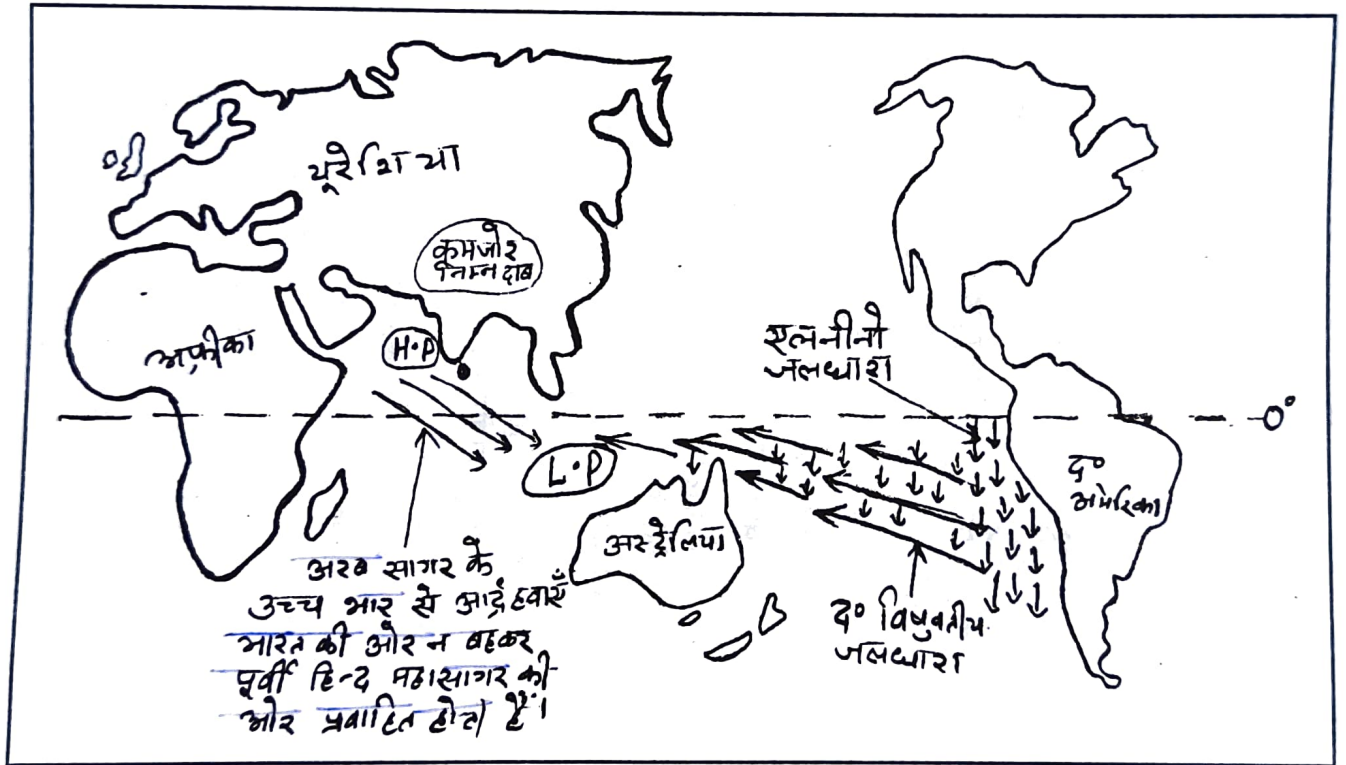 यूरेशिया
कमजोर
निम्न दाब
अफ्रीका
H.P
एलनीनो
जलधारा
0°
L.P
द०
अमेरिका
अस्ट्रेलिया
अरब सागर के
उच्च भार से आर्द्र हवाएँ
भारत की ओर न बहकर
पूर्वी हिन्द महासागर की
ओर प्रवाहित होता है।
द० विषुवतीय
जलधारा